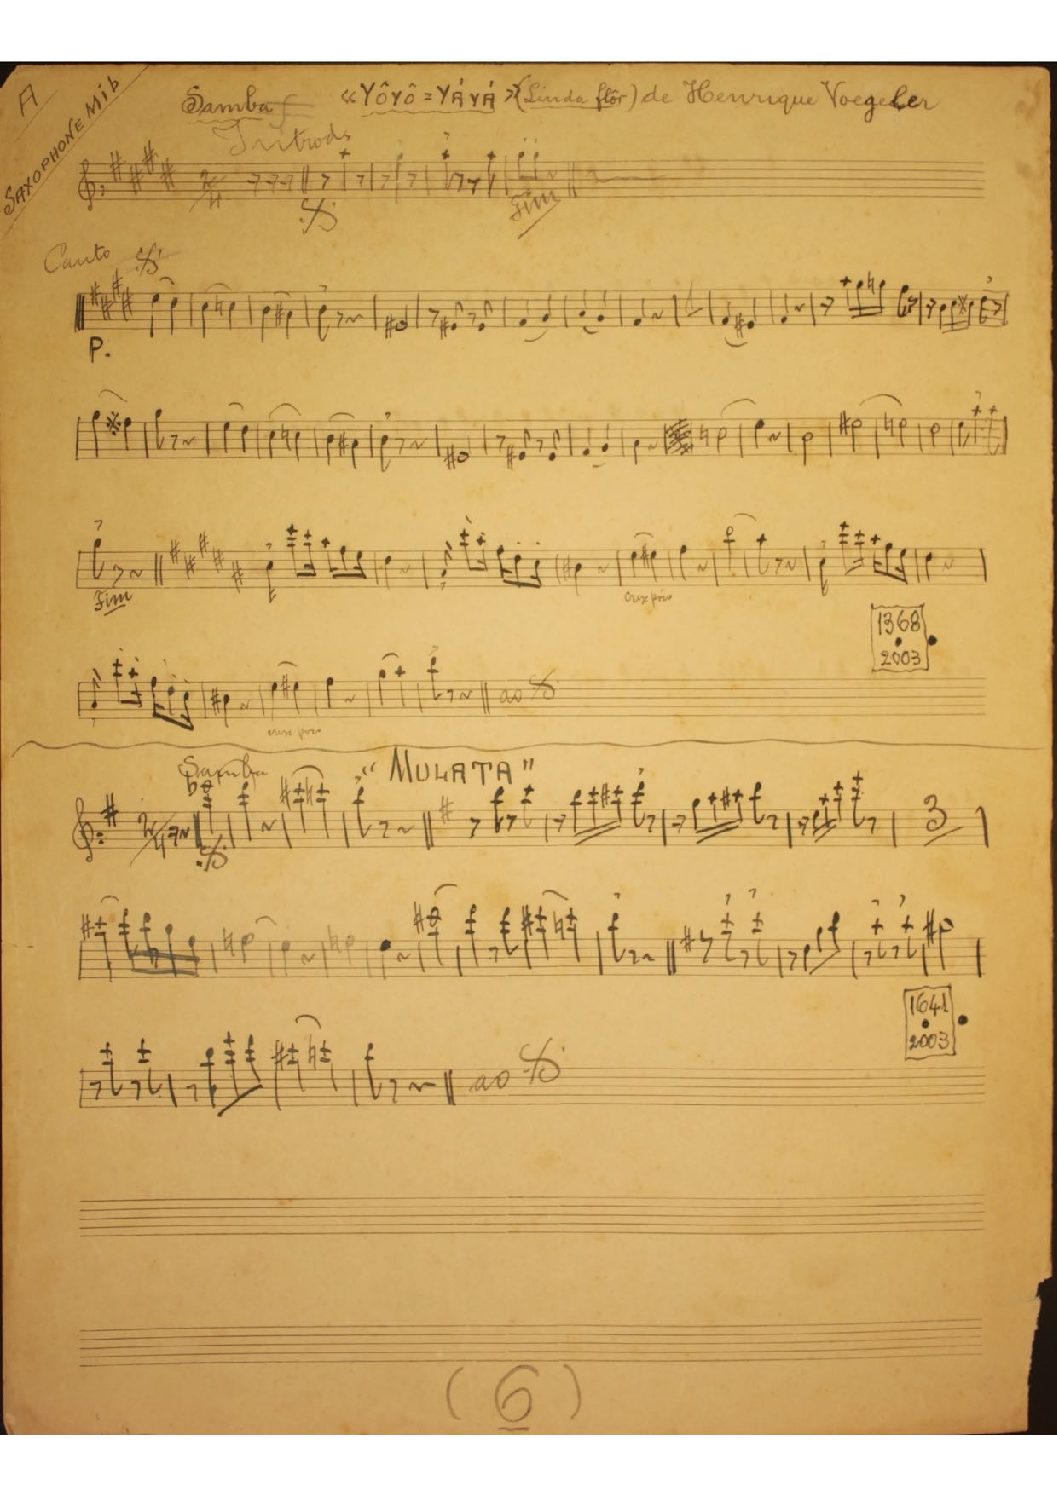 A
SAXOPHONE Mib
Samba «YÔYÔ=YÁYÁ» (Linda flôr) de Henrique Voegeler
Introd
Fim
Canto
P.
Fim
1368
2003
ao
Samba "MULATA"
3
1641
2003
ao
(6)